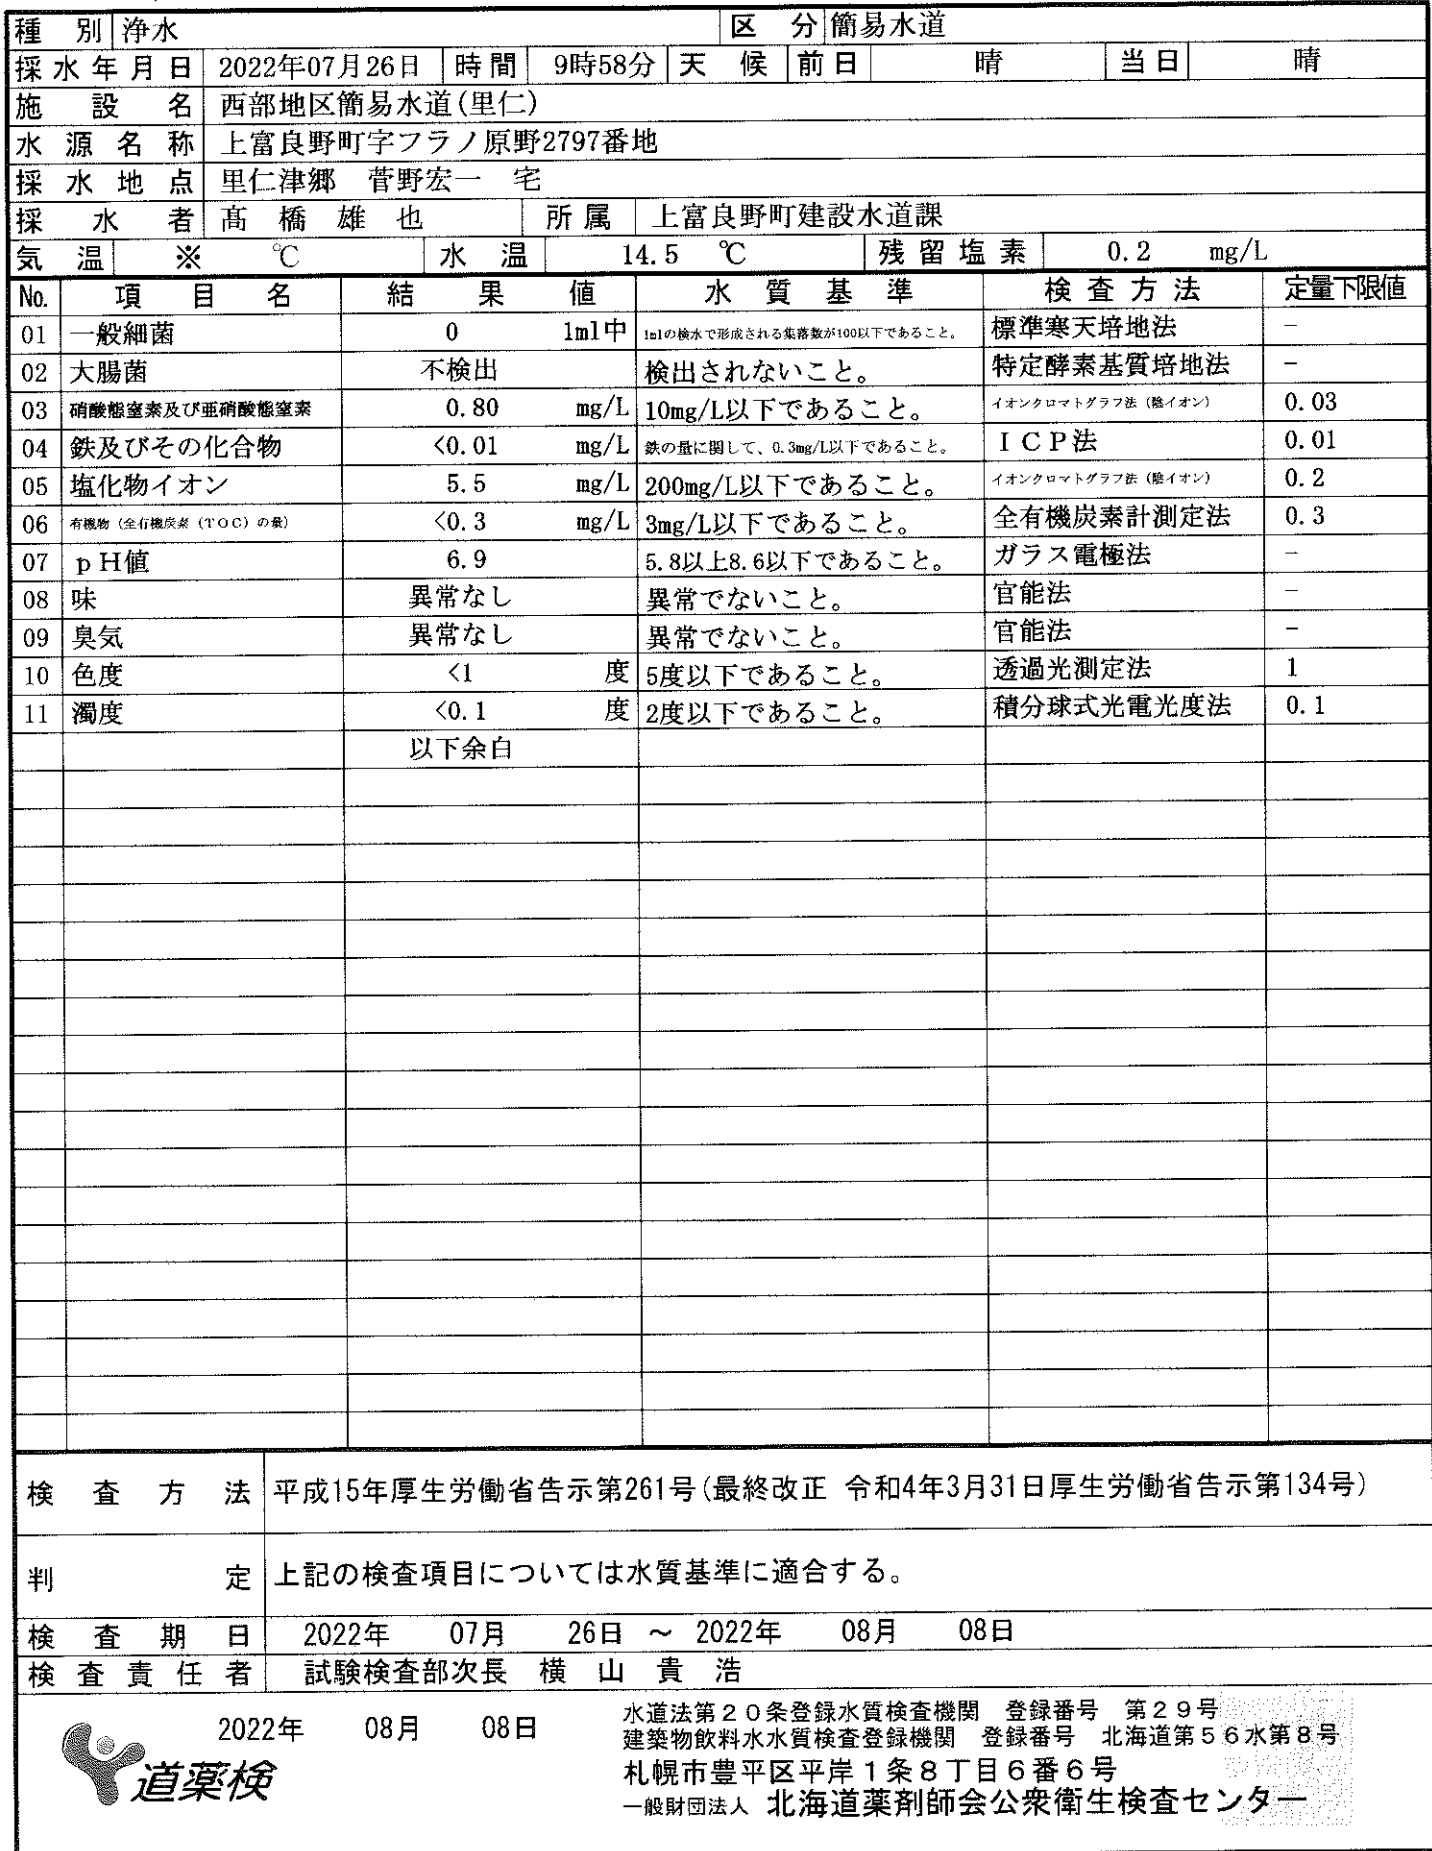 種別 浄水 区分 簡易水道
採水年月日 2022年07月26日 時間 9時58分 天候 前日 晴 当日 晴
施設名 西部地区簡易水道(里仁)
水源名称 上富良野町字フラノ原野2797番地
採水地点 里仁津郷 菅野宏一 宅
採水者 髙橋雄也 所属 上富良野町建設水道課
気温 ※ ℃ 水温 14.5 ℃ 残留塩素 0.2 mg/L
No. 項目名 結果値 水質基準 検査方法 定量下限値
01 一般細菌 0 1ml中 1mlの検水で形成される集落数が100以下であること。 標準寒天培地法 －
02 大腸菌 不検出 検出されないこと。 特定酵素基質培地法 －
03 硝酸態窒素及び亜硝酸態窒素 0.80 mg/L 10mg/L以下であること。 イオンクロマトグラフ法（陰イオン） 0.03
04 鉄及びその化合物 <0.01 mg/L 鉄の量に関して、0.3mg/L以下であること。 ＩＣＰ法 0.01
05 塩化物イオン 5.5 mg/L 200mg/L以下であること。 イオンクロマトグラフ法（陰イオン） 0.2
06 有機物（全有機炭素（ＴＯＣ）の量） <0.3 mg/L 3mg/L以下であること。 全有機炭素計測定法 0.3
07 ｐＨ値 6.9 5.8以上8.6以下であること。 ガラス電極法 －
08 味 異常なし 異常でないこと。 官能法 －
09 臭気 異常なし 異常でないこと。 官能法 －
10 色度 <1 度 5度以下であること。 透過光測定法 1
11 濁度 <0.1 度 2度以下であること。 積分球式光電光度法 0.1
以下余白
検査方法 平成15年厚生労働省告示第261号(最終改正 令和4年3月31日厚生労働省告示第134号)
判定 上記の検査項目については水質基準に適合する。
検査期日 2022年 07月 26日 ～ 2022年 08月 08日
検査責任者 試験検査部次長 横山貴浩
2022年 08月 08日
道薬検
水道法第２０条登録水質検査機関 登録番号 第２９号
建築物飲料水水質検査登録機関 登録番号 北海道第５６水第８号
札幌市豊平区平岸１条８丁目６番６号
一般財団法人 北海道薬剤師会公衆衛生検査センター